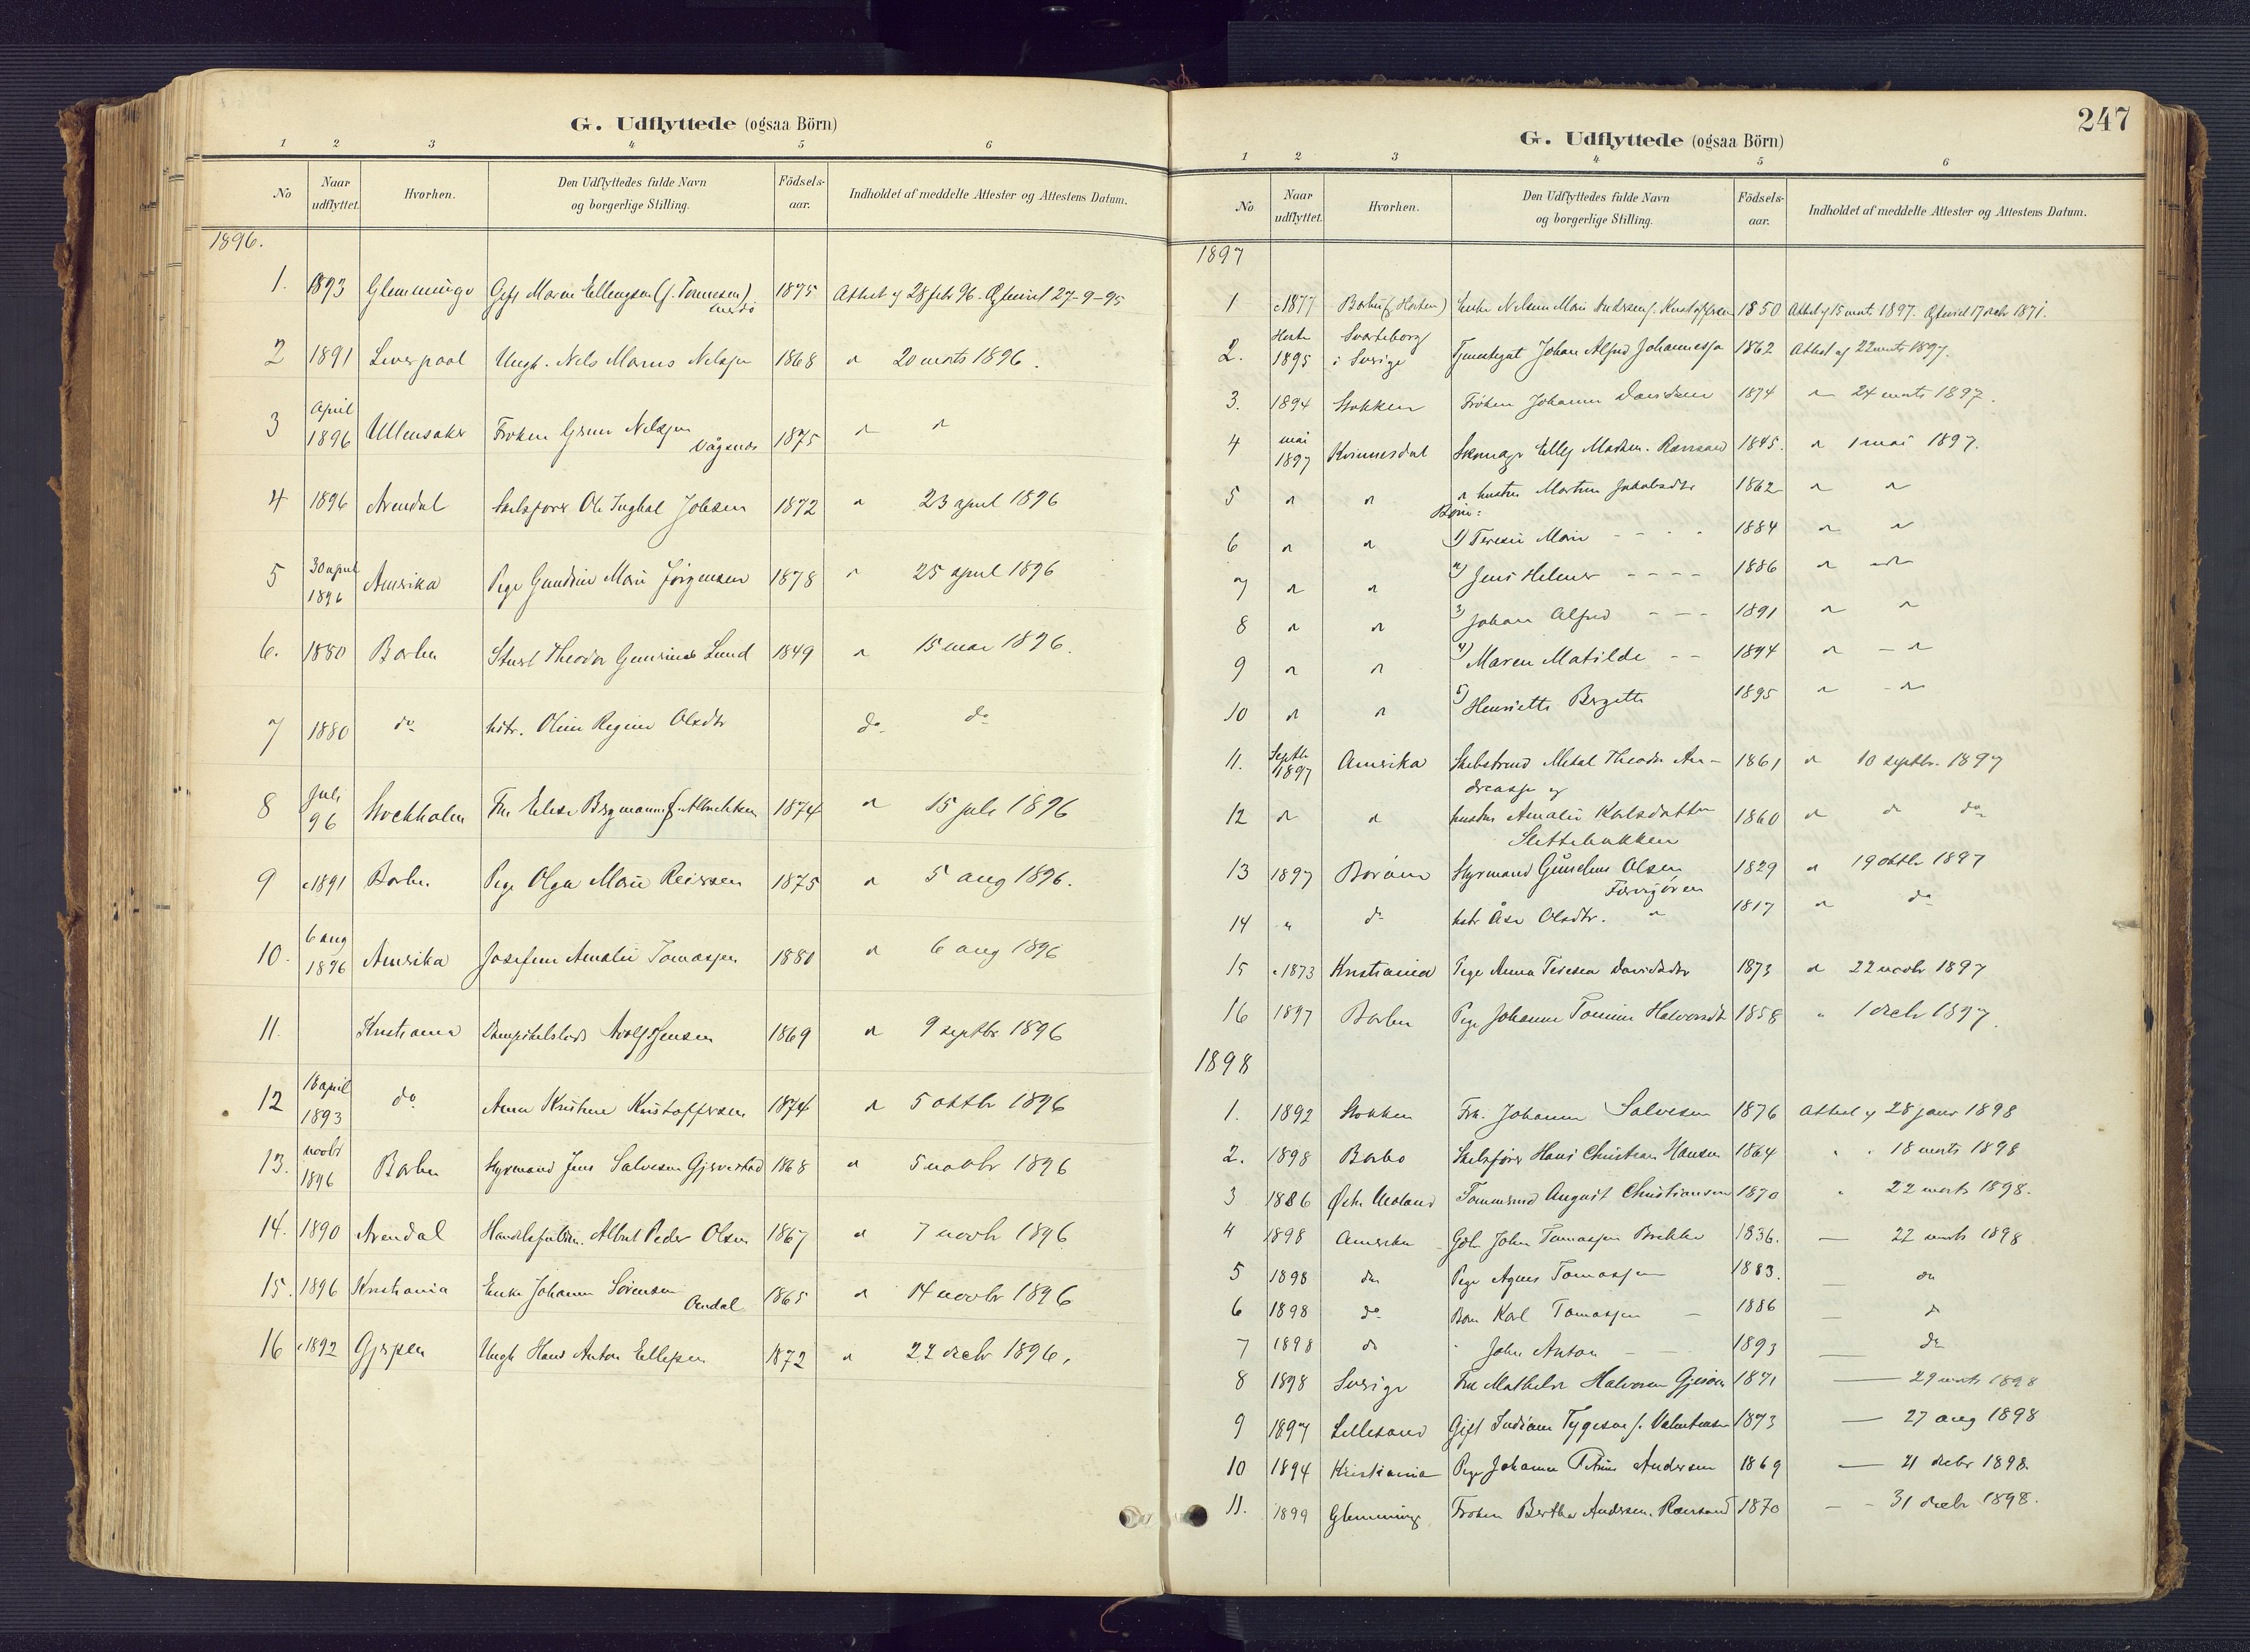 G. Udflyttede (ogsaa Börn)
1 2 3 4 5 6
No Naar udflyttet. Hvorhen. Den Udflyttedes fulde Navn og borgerlige Stilling. Födsels-aar. Indholdet af meddelte Attester og Attestens Datum.
1896.
1. 1893 Glemminge Gift Maren Ellingsen (f. Tønnesen) 1875 Attest af 28 febr 96. 27-9-95
2 1891 Liverpool Ungk. Nels Marius Nelsen 1868 " 20 marts 1896.
3 April 1896 Ullensaker Frøken Nelsen Vågsnes 1875 " "
4 1896 Arendal Skibsfører Ole Jobsen 1872 " 23 april 1896
5 30 april 1896 Amerika Pige Gundine Marie Jörgensen 1878 " 25 april 1896
6. 1880 Barbu Theodor Lund 1849 " 15 mai 1896.
7 1880 do hstr. Oline Regine Olsdtr do do
8 Juli 96 Stockholm Elise Bergmann f. Albrektsen 1874 " 15 juli 1896
9 c1891 Barbu Pige Olga Marie Reiersen 1875 " 5 aug 1896.
10. 6 aug 1896 Amerika Josefine Amalie Tomassen 1880 " 6 aug 1896
11. Kristiania Adolf Jensen 1869 " 9 septbr 1896
12 18 april 1893 do Anna Kristine Kristoffersen 1874 " 5 oktbr 1896
13. novbr 1896 Barbu Styrmand Jens Salvesen Gjervestad 1868 " 5 novbr 1896
14. 1890 Arendal Albert Peder Olsen 1867 " 7 novbr 1896
15. 1896 Kristiania Enke Johanne Sörensen 1865 " 14 novbr 1896
16 c1892 Gjerpen Ungk Hans Anton Ellefsen 1872 " 22 decbr 1896.
247
G. Udflyttede (ogsaa Börn)
1 2 3 4 5 6
No Naar udflyttet. Hvorhen. Den Udflyttedes fulde Navn og borgerlige Stilling. Födsels-aar. Indholdet af meddelte Attester og Attestens Datum.
1897
1 c1877 Barbu (f. Horten) Enke Marie Andersen f. Kristoffersen 1850 Attest af 15 marts 1897. 1871.
2. Høsten 1895 Svarteborg i Sverige Tjenestegut Johan Alfred Johannessen 1862 Attest af 22 marts 1897.
3. 1894 Stokken Frøken Johanne Davidsen 1874 " 24 marts 1897.
4 mai 1897 Kvinnesdal Skomager Ellef Madsen. Rævesand 1845. " 1 mai 1897.
5 " " " hustru Martine Jakobsdtr 1862 " "
Børn:
6 " " 1) Teresie Marie 1884 " "
7 " " 2) Jens Helmer 1886 " "
8 " " 3) Johan Alfred 1891 " "
9 " " 4) Maren Matilde 1894 " "
10 " " 5) Henriette Bergette 1895 " "
11. Septbr 1897 Amerika Theodor An-
dreassen og 1861 " 10 septbr. 1897
12 " " hustru Amalie Karlsdatter
Slettebakken 1860 " " do
13 1897 Borøen Styrmand Gunelius Olsen
1829 " 19 oktbr 1897
14 " do hstr Åse Olsdtr. " 1817 " do
15 c1873 Kristiania Pige Anna Teresea Davidsdtr 1873 " 22 novbr 1897
16 1897 Barbu Pige Johanne Tomine Halvorsdtr 1858 " 1 decbr 1897.
1898
1. 1892 Stokken Frk. Johanne Salvesen 1876 Attest af 28 januar 1898
2. 1898 Barbo Skibsfører Hans Christian Hansen 1864 " " 18 marts 1898
3 1886 Østre Moland Tømmermd August Christiansen 1870 " 22 marts 1898.
4 1898 Amerika John Tomassen Brekke 1836. — 22 marts 1898
5 1898 do Pige Agnes Tomassen 1883. — do
6 1898 do Barn Karl Tomassen 1886 — do
7 1898 do " John Anton 1893 — do
8 1898 Sverige Mathilde Halvorsen 1871 — 29 marts 1898
9 1897 Lillesand Gift Indiane Tygesen f. Valentinsen 1873 — 27 aug 1898
10 1894 Kristiania Pige Johanne Petrine Andersen 1869 — 21 decbr 1898.
11. 1899 Glemminge Frøken Bertha Andersen. Rævesand 1870 — 31 decbr 1898.